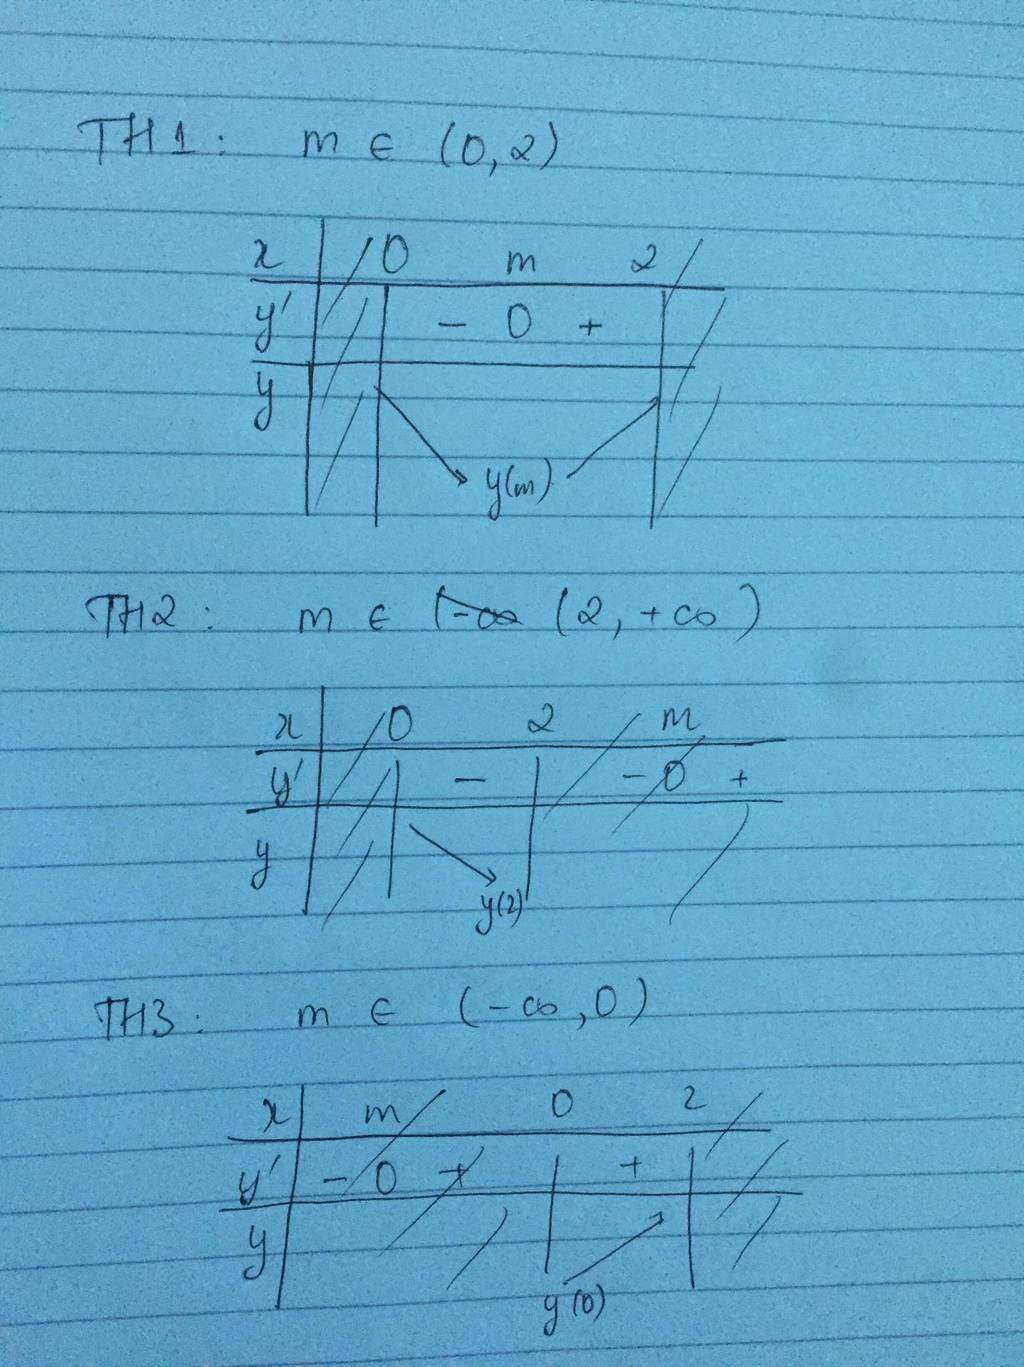 TH1: m ∈ (0,2)
x 0 m 2
y' - 0 +
y
y(m)
TH2: m ∈ (-∞ (2, +∞)
x 0 2 m
y' - - 0 +
y
y(2)
TH3: m ∈ (-∞, 0)
x m 0 2
y' - 0 + +
y
y(0)